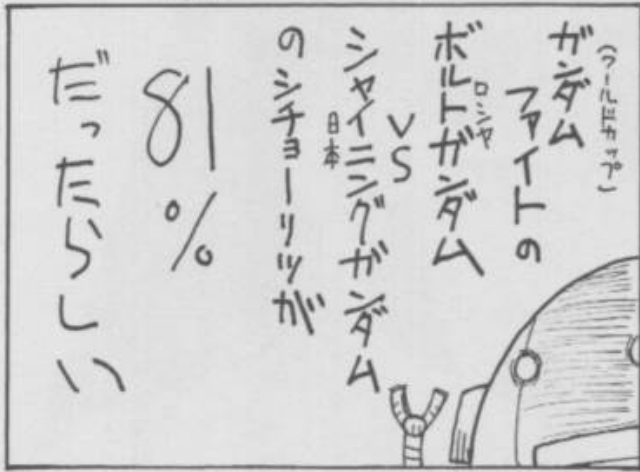 (ワールドカップ)
ガンダム
ファイトの
ロシヤ
ボルトガンダム
VS
日本
シャイニングガンダム
のシチョーリツが
81%
だったらしい